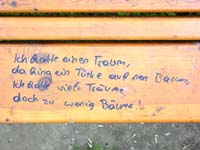 Ich hatte einen Traum,
da hing ein Türke auf nen Baum,
Ich hatte viele Träume
doch zu wenig Bäume!